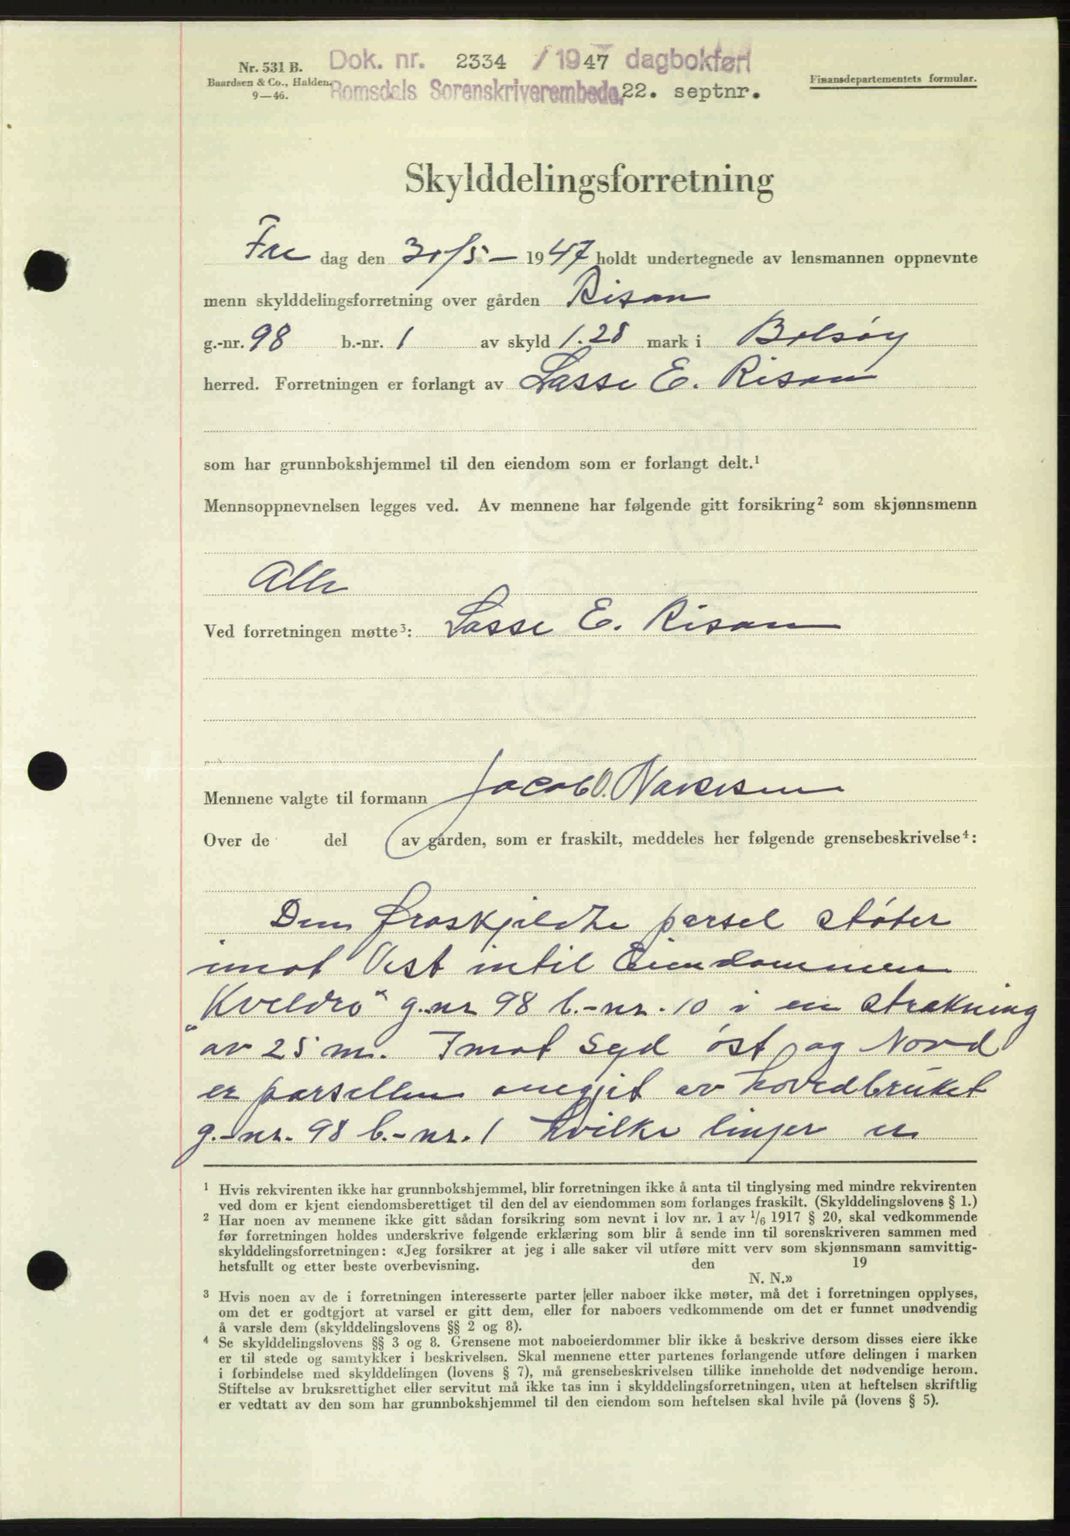 Nr. 531 B.
Baardsen & Co., Halden.
9—46.
Dok. nr. 2334 / 1947 dagbokført
Romsdals Sorenskriverembede, 22. septnr.
Finansdepartementets formular.
Skylddelingsforretning
Fre dag den 30/5 — 1947 holdt undertegnede av lensmannen oppnevnte
menn skylddelingsforretning over gården Risan
g.-nr. 98 b.-nr. 1 av skyld 1.28 mark i Bolsøy
herred. Forretningen er forlangt av Lasse E. Risan
som har grunnbokshjemmel til den eiendom som er forlangt delt.¹
Mennsoppnevnelsen legges ved. Av mennene har følgende gitt forsikring² som skjønnsmenn
Alle
Ved forretningen møtte³: Lasse E. Risan
Mennene valgte til formann Jacob O.
Over de del av gården, som er fraskilt, meddeles her følgende grensebeskrivelse⁴:
Den fraskjildte parsel støter
imot Vest intil Eiendommen
"Kveldro" g.-nr 98 b.-nr. 10 i en strekning
av 25 m. Imot Syd øst og Nord
er parsellen omgjit av hovedbruket
g.-nr. 98 b.-nr. 1 hvilke linjer er
¹ Hvis rekvirenten ikke har grunnbokshjemmel, blir forretningen ikke å anta til tinglysing med mindre rekvirenten
ved dom er kjent eiendomsberettiget til den del av eiendommen som forlanges fraskilt. (Skylddelingslovens § 1.)
² Har noen av mennene ikke gitt sådan forsikring som nevnt i lov nr. 1 av 1/6 1917 § 20, skal vedkommende
før forretningen holdes underskrive følgende erklæring som blir å sende inn til sorenskriveren sammen med
skylddelingsforretningen: «Jeg forsikrer at jeg i alle saker vil utføre mitt verv som skjønnsmann samvittig-
hetsfullt og etter beste overbevisning. den 19
N. N.»
³ Hvis noen av de i forretningen interesserte parter eller naboer ikke møter, må det i forretningen opplyses,
om det er godtgjort at varsel er gitt dem, eller for naboers vedkommende om det er funnet unødvendig
å varsle dem (skylddelingslovens §§ 2 og 8).
⁴ Se skylddelingslovens §§ 3 og 8. Grensene mot naboeierdommer blir ikke å beskrive dersom disses eiere ikke
er til stede og samtykker i beskrivelsen. Skal mennene etter partenes forlangende utføre delingen i marken
i forbindelse med skylddelingen (lovens § 7), må grensebeskrivelsen tillike inneholde det nødvendige herom.
Stiftelse av bruksrettighet eller servitut må ikke tas inn i skylddelingsforretningen, uten at heftelsen skriftlig
er vedtatt av den som har grunnbokshjemmel til den eiendom som heftelsen skal hvile på (lovens § 5).